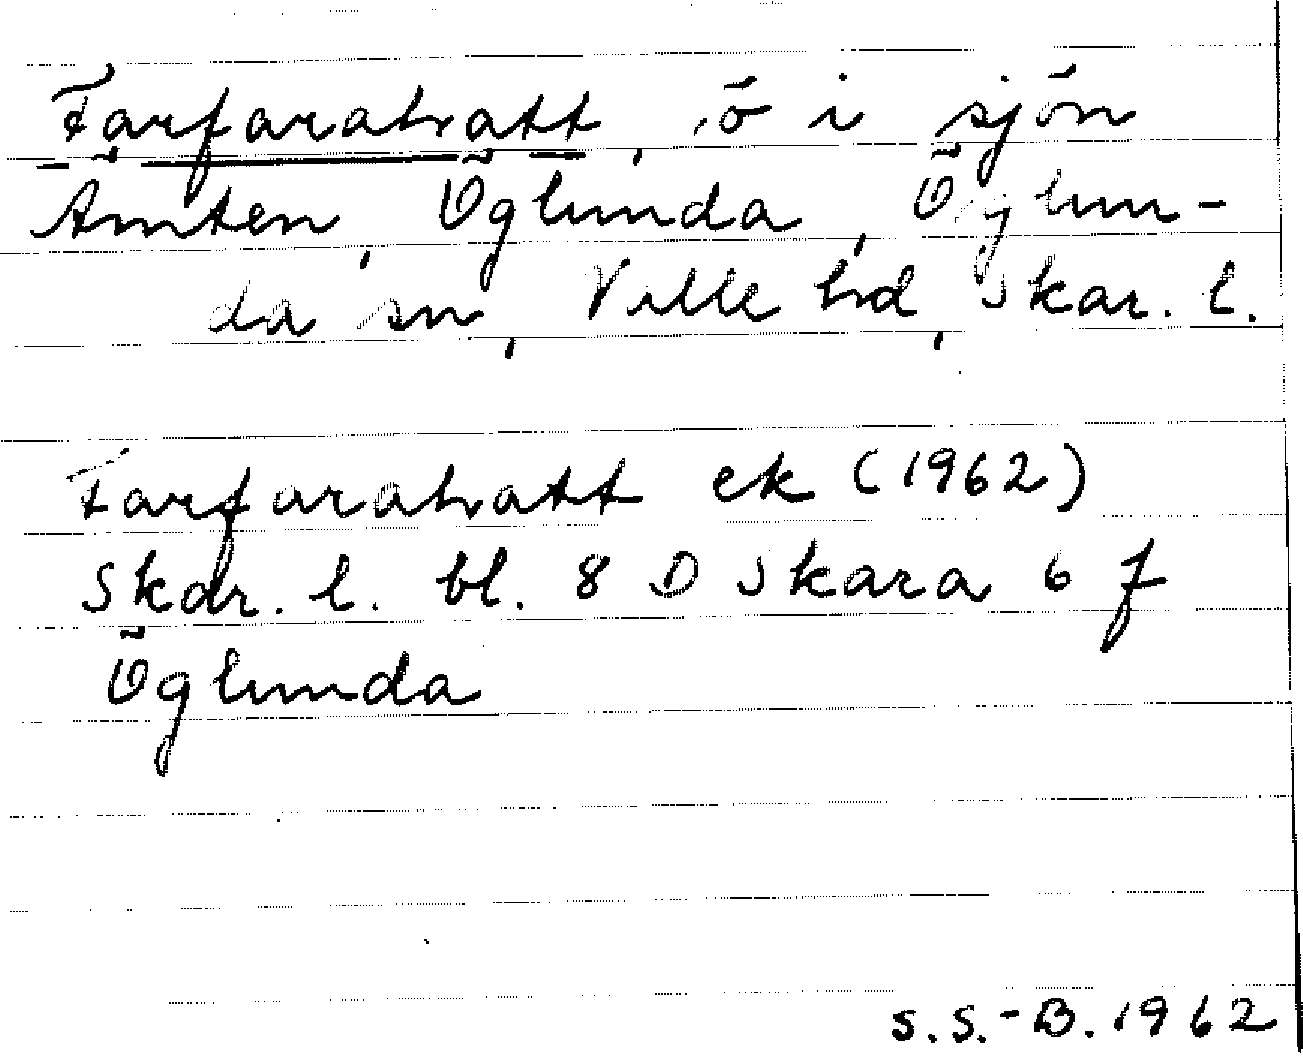 Farfarahatt, ö i sjön
Ämten, Öglunda, Öglun-
da sn, Valle hd, Skar. l.
Farfarahatt ek (1962)
Skar. l. bl. 8 D Skara 6 f
Öglunda
S. S.-B. 1962